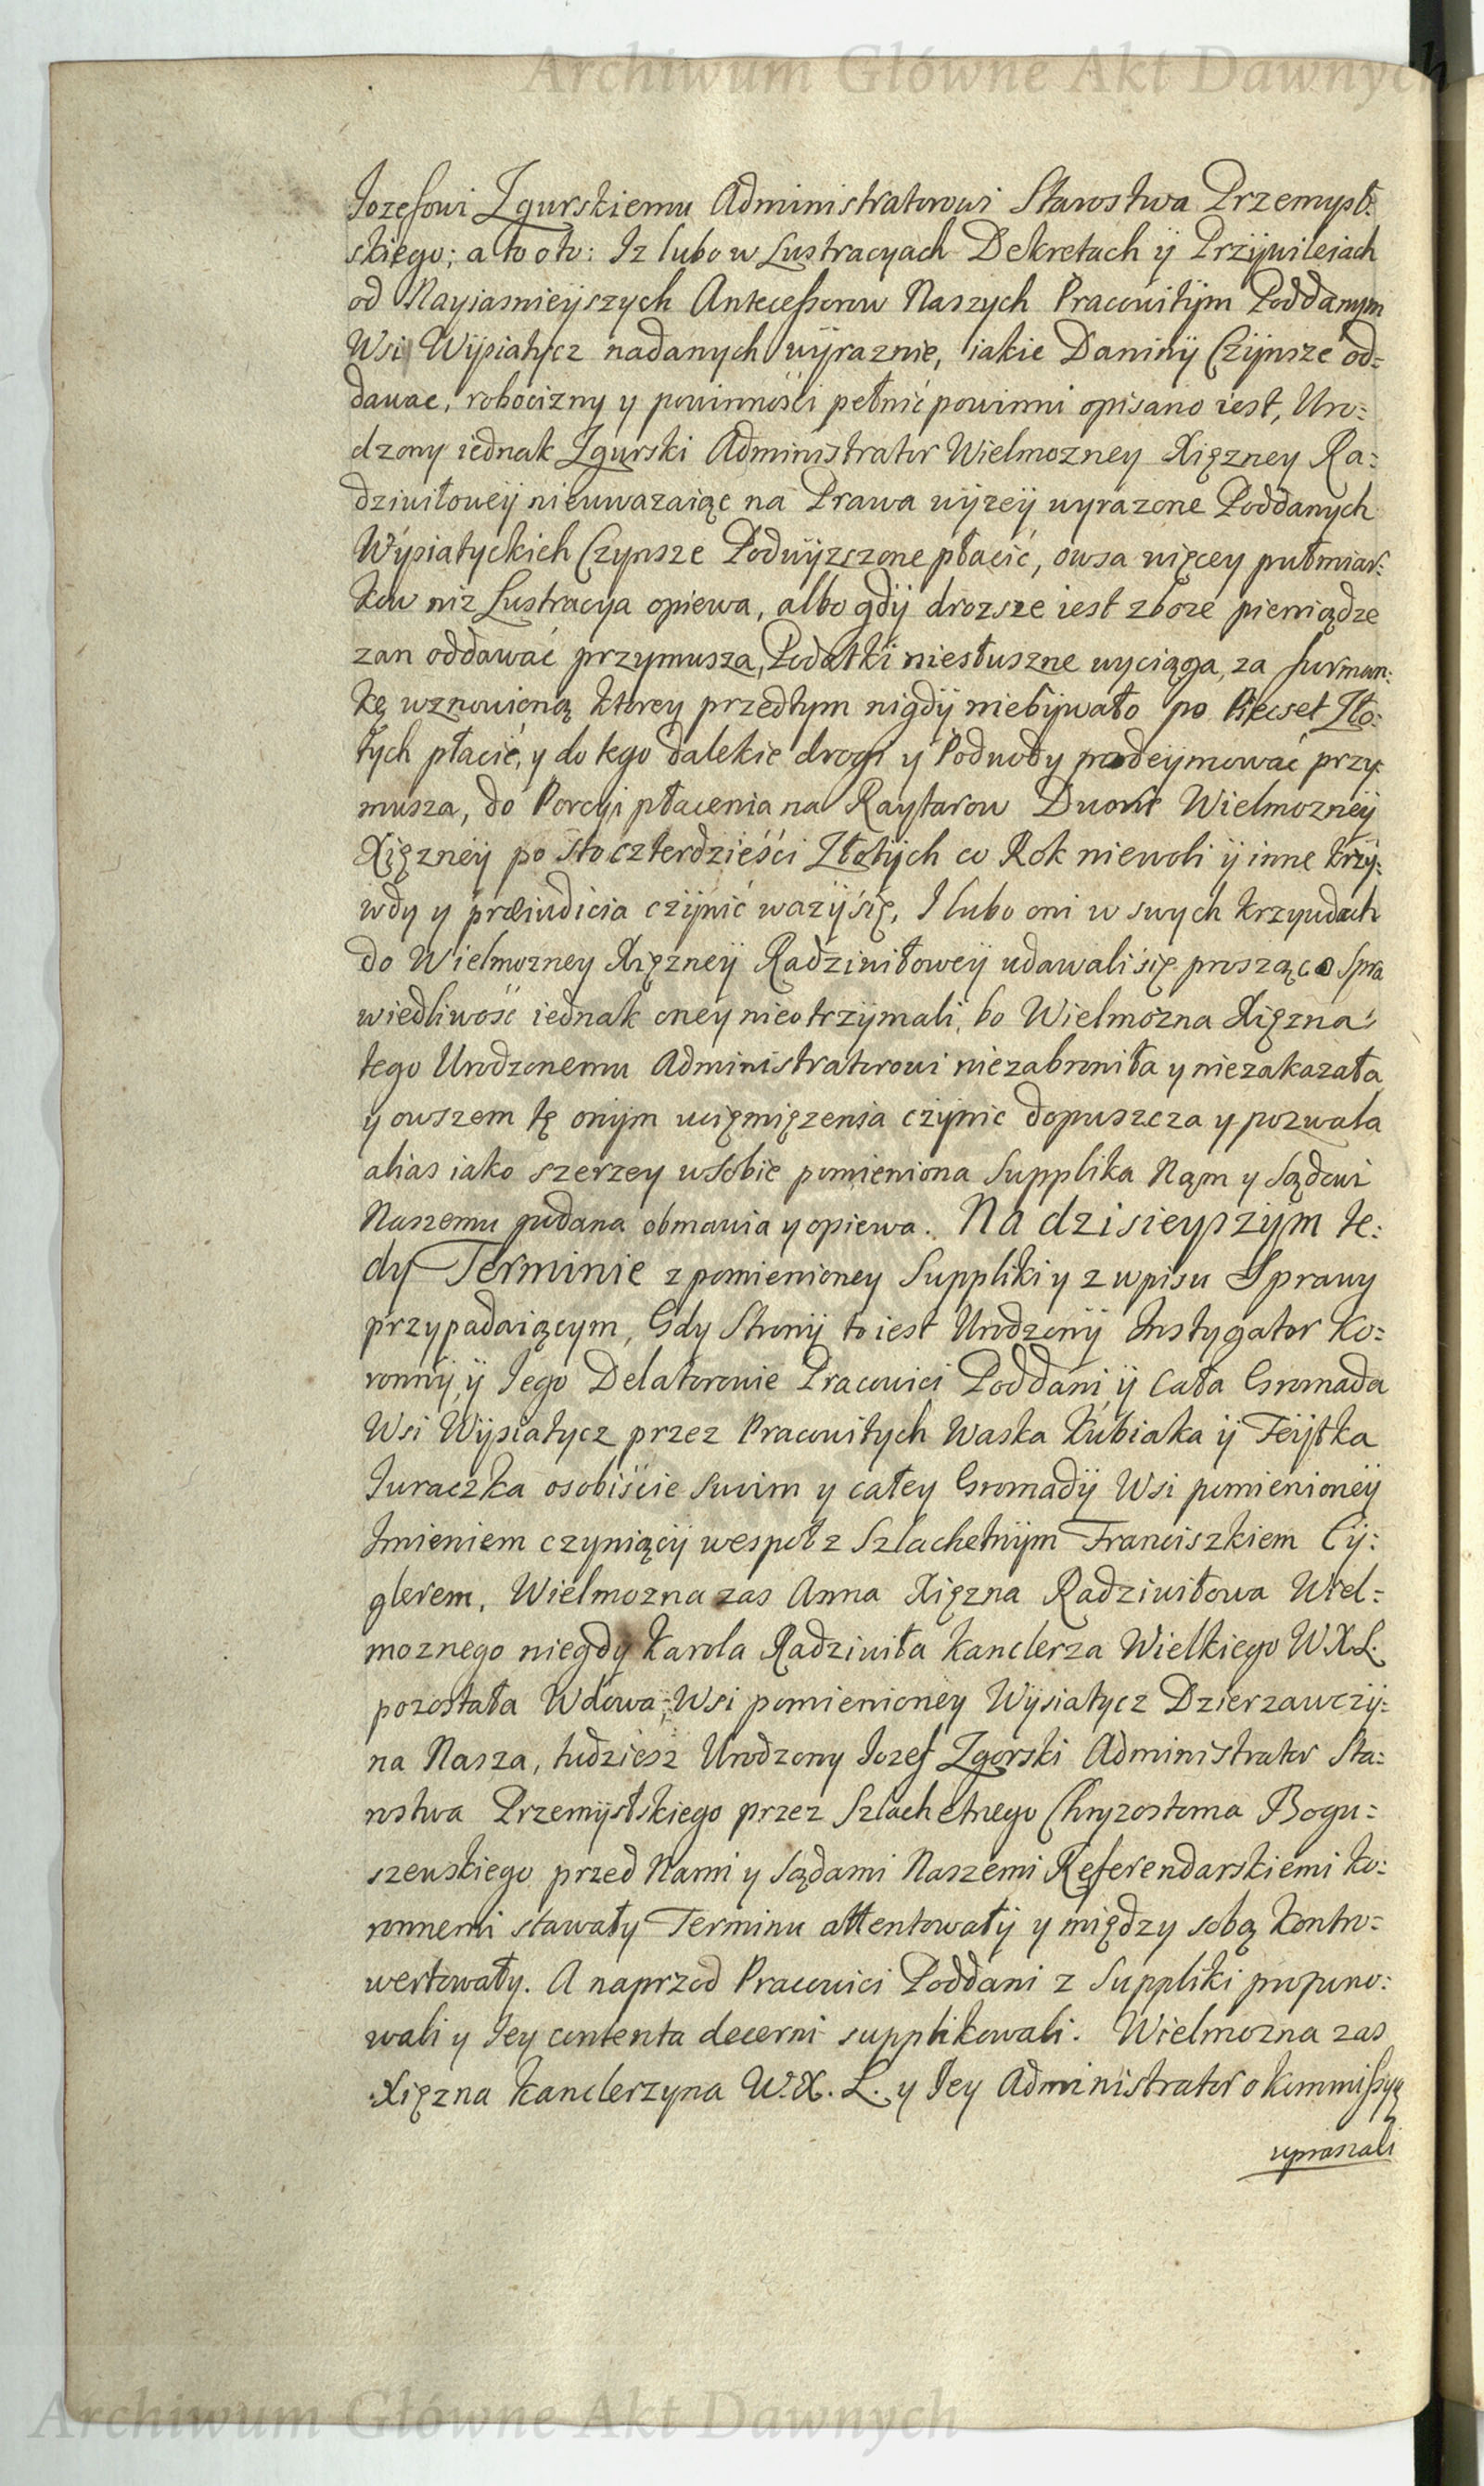 Archiwum Główne Akt Dawnych
Jozefowi Zgurskiemu Administratorowi Starostwa Przemysł:
skiego; a to oto: Iz lubo w Lustracyach Dekretach ÿ Przÿwileiach
od Nayiasnieÿszych Antecessorow Naszych Pracowitÿm Poddanym
Wsi Wÿsiatycz nadanych wÿraznie, iakie Daninÿ Czÿnsze od=
dawac, robocizny y powinności pełnić powinni opisano iest, Uro=
dzony iednak Zgurski Administrator Wielmozney Xięzney Ra=
dziwiłoweÿ nieuwazaiąc na Prawa wÿzeÿ wyrazone Poddanych
Wÿsiatyckich Czynsze Podwÿzszone płacić, owsa więcey pułmiar=
kow niz Lustracya opiewa, albo gdÿ drozsze iest zboze pieniądze
zan oddawać przymusza, Podatki niesłuszne wyciąga, za furman:
kę wznowioną ktorey przedtym nigdÿ niebÿwało po Pięcset Zło:
tych płacić, y do tego dalekie drogi y Podwody podeymować przy
musza, do Porcyi płacenia na Raytarow Dworu Wielmozneÿ
Xięzneÿ po sto czterdzieści Złotÿch co Rok niewoli ÿ inne krzÿ:
wdy y præiudicia czÿnić wazÿ się, I lubo oni w swych krzywdach
do Wielmozney Xięzneÿ Radziwiłoweÿ udawali się prosząc o Spra
wiedliwość iednak oney nieotrzÿmali, bo Wielmozna Xięzna
tego Urodzonemu Administratorowi niezabroniła y niezakazała
y owszem tę onÿm uciemięzenia czÿnic dopuszcza y pozwala
alias iako szerzey w sobie pomieniona Supplika Nąm y Sądowi
Naszemu podana obmawia y opiewa. Na dzisieyszÿm te:
dy Terminie z pomienioney Suppliki y z wpisu Sprawy
przypadaiącym, Gdy Stronÿ to iest Urodzonÿ Instygator Ko=
ronnÿ, ÿ Jego Delatorowie Pracowici Poddani ÿ Cała Gromada
Wsi Wÿsiatycz przez Pracowitych Waska Kubiaka ÿ Feÿłka
Juraczka osobiście swim y całey Gromadÿ Wsi pomienioneÿ
Imieniem czyniącÿ wespoł z Szlachetnÿm Franciszkiem Cÿ:
glerem, Wielmozna zas Anna Xięzna Radziwiłowa Wiel=
moznego niegdy Karola Radziwiła Kanclerza Wielkiego W.X.L.
pozostała Wdowa, Wsi pomienioney Wÿsiatycz Dzierzawczÿ=
na Nasza, tudziesz Urodzony Jozef Zgorski Administrator Sta=
rostwa Przemÿsłskiego przez Szlachetnego Chryzostoma Bogu=
szewskiego przed Nami y Sądami Naszemi Referendarskiemi Ko:
ronnemi stawały Terminu attentowałÿ y między sobą kontro=
wertowały. A naprzod Pracowici Poddani z Suppliki propono:
wali y Jey contenta decerni supplikowali. Wielmozna zas
Xięzna Kanclerzyna W.X.L. y Jey Administrator o Kommissyą
upraszali
Archiwum Główne Akt Dawnych